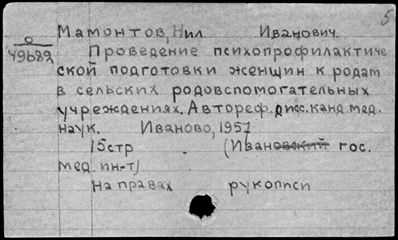 5
Мамонтов, Нил Иванович.
О
49682
Проведение психопрофилактиче
ской подготовки женщин к родам
в сельских родовспомогательных
учреждениях. Автореф. дисс. канд. мед.
наук. Иваново, 1957
15стр (Ивановский гос.
мед. ин-т)
На правах рукописи